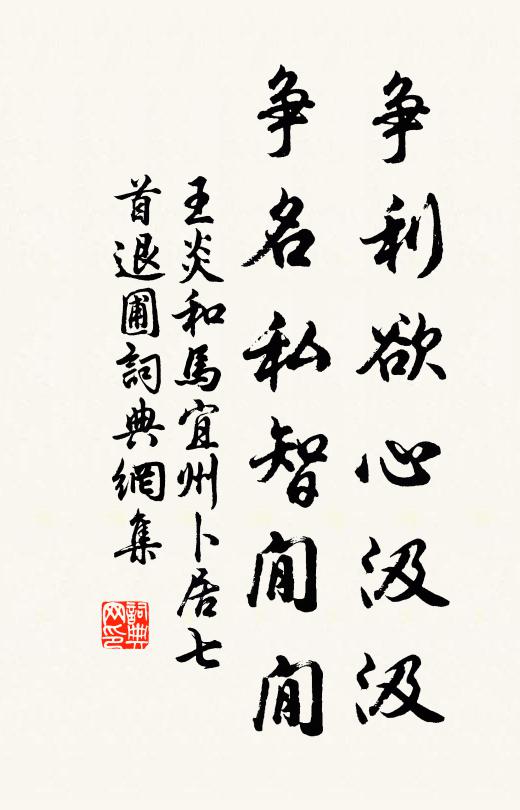 争利欲心汲汲
争名私智閒閒
王炎和馬宜州卜居七
首退圃詞典網集
詞典網印